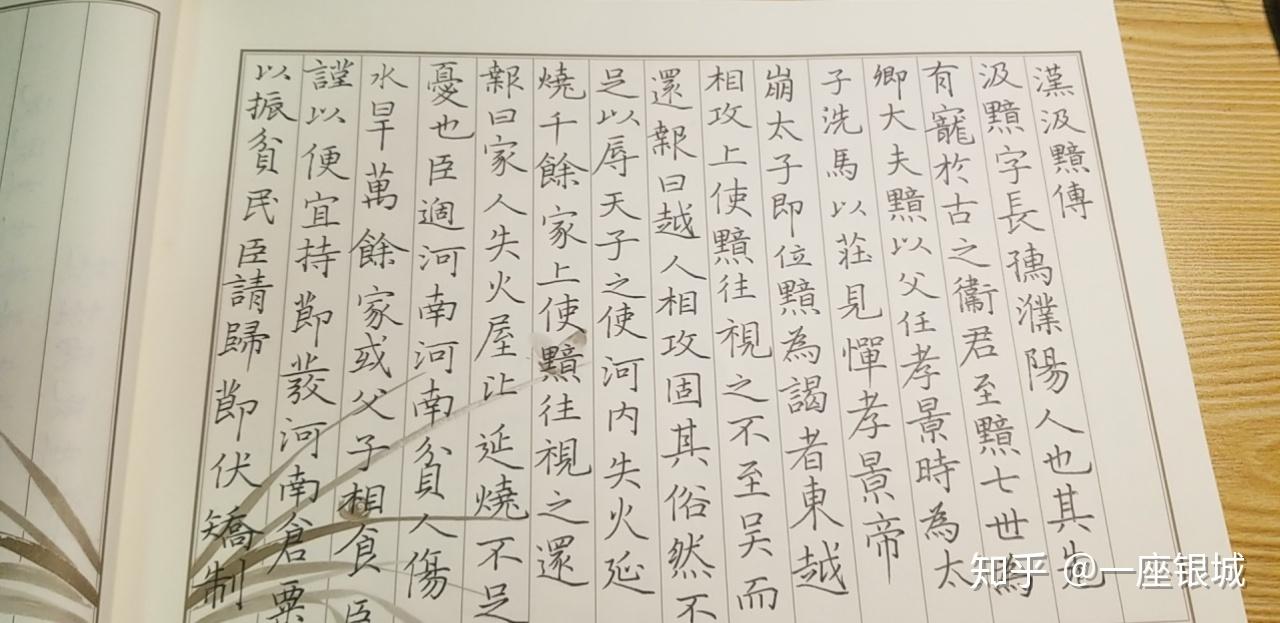 漢汲黯傳
汲黯字長孺濮陽人也其先
有寵於古之衞君至黯七世為
卿大夫黯以父任孝景時為太
子洗馬以莊見憚孝景帝
崩太子即位黯為謁者東越
相攻上使黯往視之不至吳而
還報曰越人相攻固其俗然不
足以辱天子之使河內失火延
燒千餘家上使黯往視之還
報曰家人失火屋比延燒不足
憂也臣過河南河南貧人傷
水旱萬餘家或父子相食臣
謹以便宜持節發河南倉粟
以振貧民臣請歸節伏矯制
知乎 @一座银城